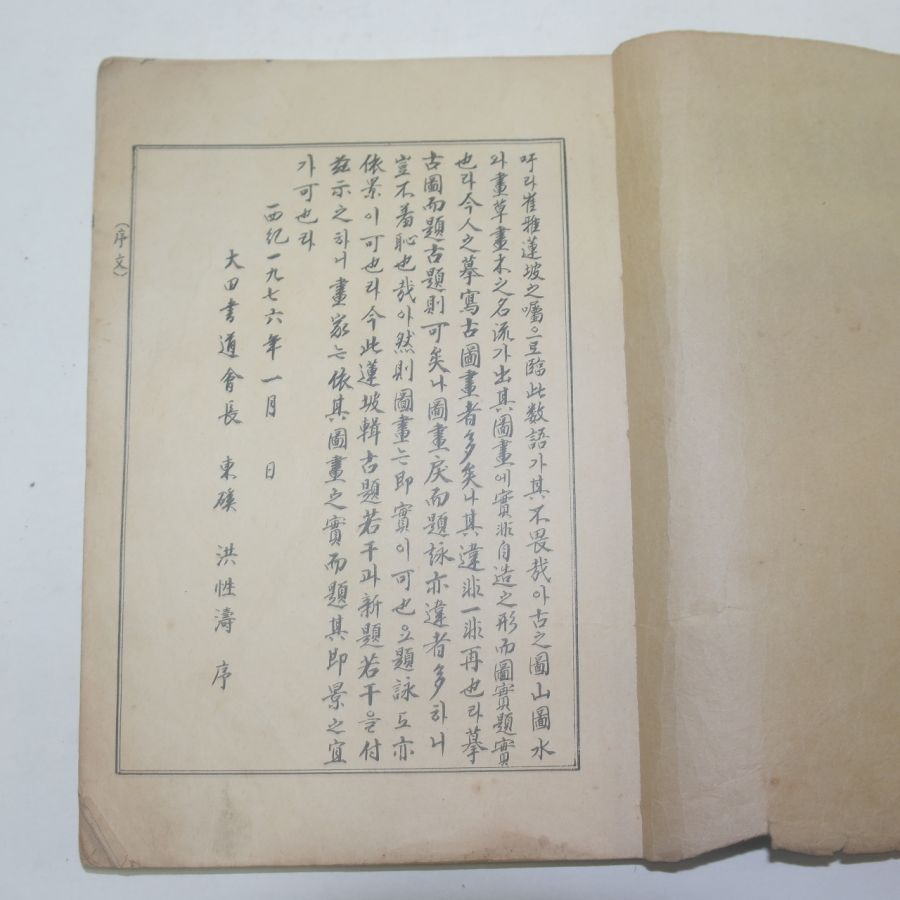 吁라崔雅蓮坡之囑으로臨此数語가其不畏哉아古之圖山圖水
와畫草畫木之名流가出其圖畫에實非自造之形而圖實題實
也라今人之摹寫古圖畫者多矣나其違非一非再也라摹
古圖而題古題則可矣나圖畫戾而題詠亦違者多하니
豈不羞恥也哉아然則圖畫는即實이可也오題詠도亦
依景이可也라今此蓮坡輯古題若干과新題若干을付
玆示之하니畫家는依其圖畫之實而題其即景之宜
가可也라
西紀一九七六年一月 日
大田書道會長 東礏 洪性濤 序
(序文)